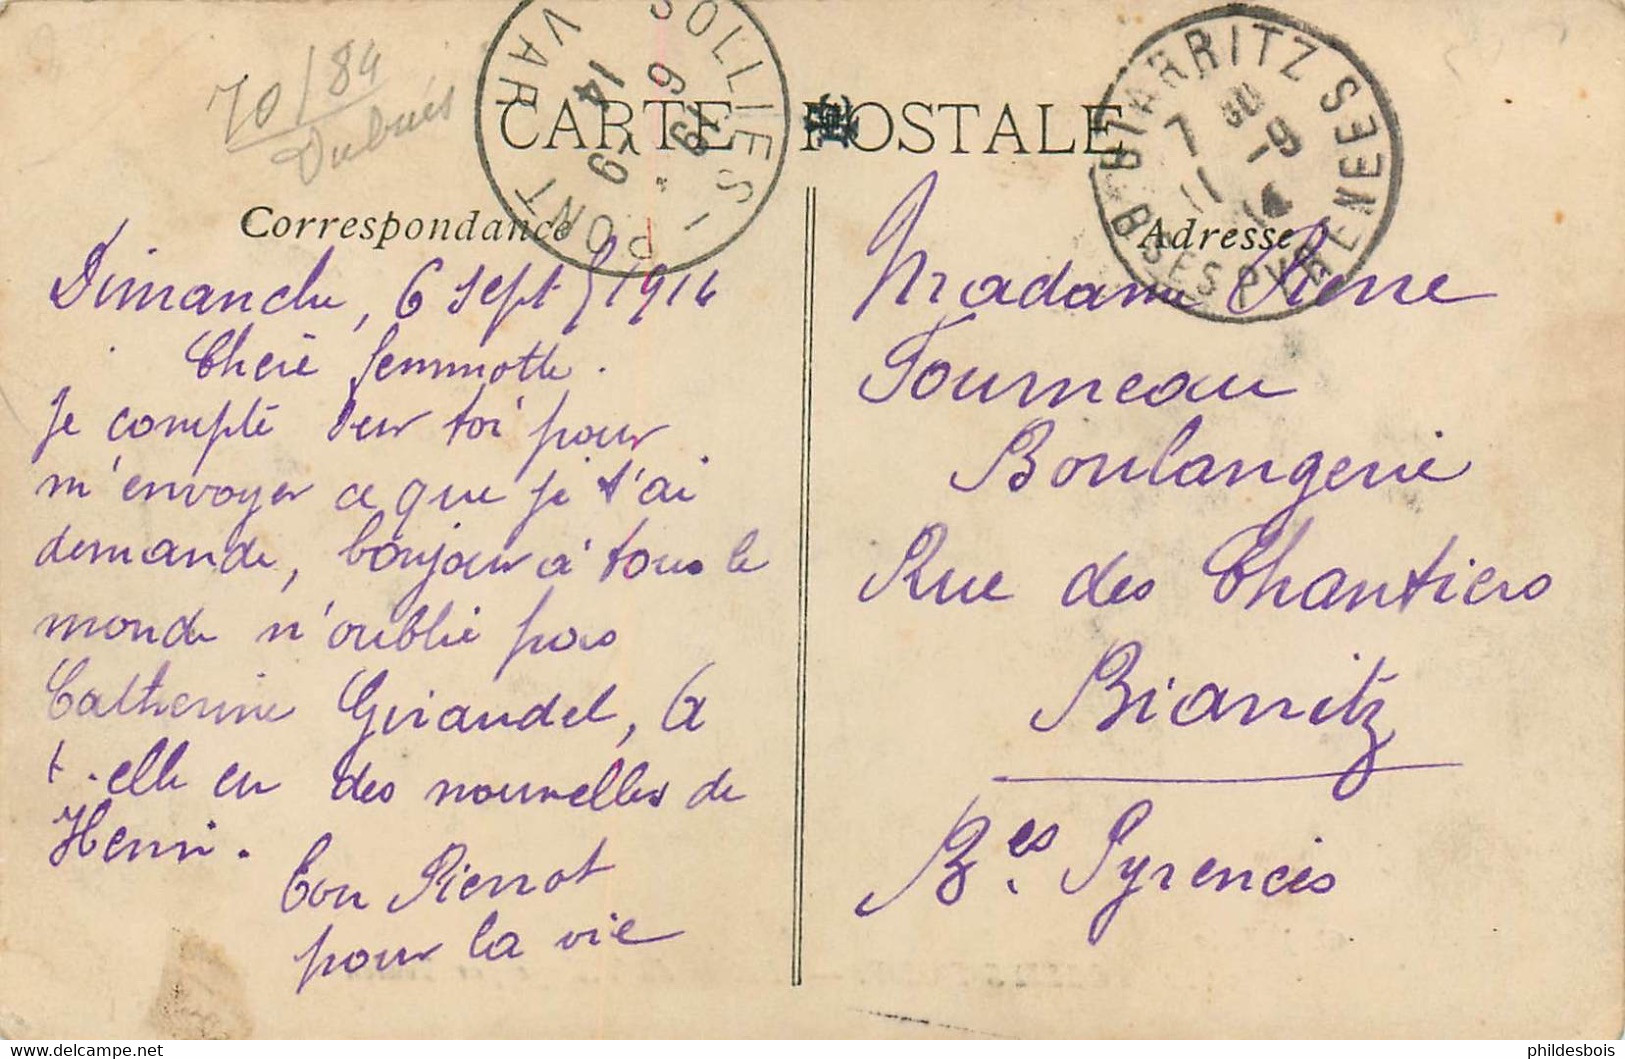 70/84
Dubués
SOLLIES-PONT
VAR
6 9
19
14 - 9
BIARRITZ
BSES PYRENEES
7 30
11 - 9
14
CARTE POSTALE
Correspondance
Adresse
Dimanche, 6 Sept 1914
Cheré femmotte.
Je compte sur toi pour
m'envoyer ce que je t'ai
demande, bonjour à tous le
monde n'oublie pas
Catherine Giraudel, a
t-elle eu des nouvelles de
Henri.
Ton Pierrot
pour la vie
Madame Pierre
Tourneau
Boulangerie
Rue des Chantiers
Biarritz
Bes. Pyrenées
phildesbois
https://www.delcampe.net